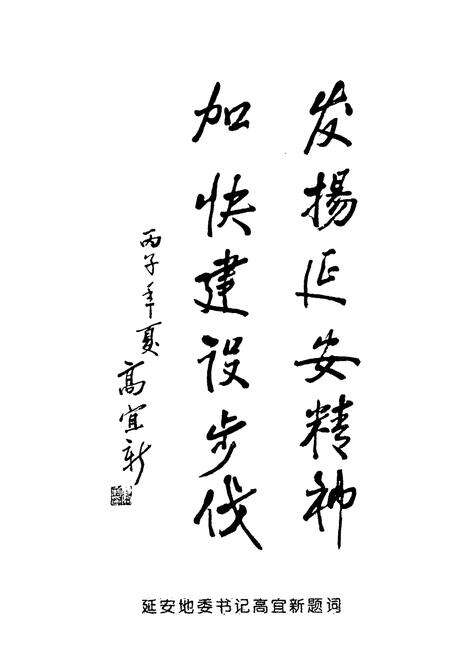 发揚延安精神
加快建设步伐
丙子年夏
高宜新
延安地委书记高宜新题词